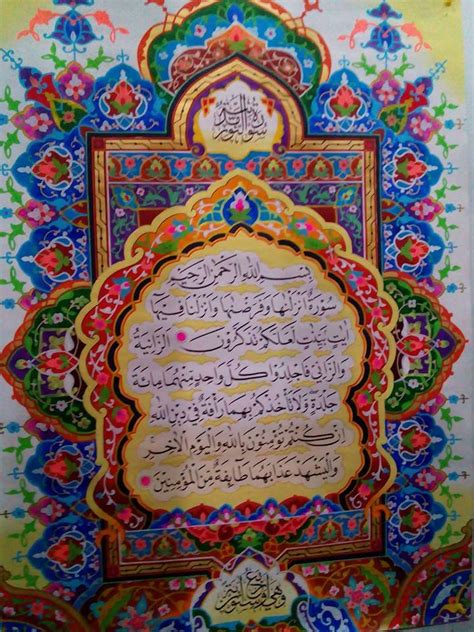 سُورَةُ النُّورِ
بِسْمِ اللهِ الرَّحْمٰنِ الرَّحِيْمِ
سُورَةٌ اَنْزَلْنٰهَا وَفَرَضْنٰهَا وَاَنْزَلْنَا فِيْهَا
اٰيٰتٍ بَيِّنٰتٍ لَعَلَّكُمْ تَذَكَّرُوْنَ اَلزَّانِيَةُ
وَالزَّانِيْ فَاجْلِدُوْا كُلَّ وَاحِدٍ مِنْهُمَا مِائَةَ
جَلْدَةٍ وَلَا تَأْخُذْكُمْ بِهِمَا رَأْفَةٌ فِيْ دِيْنِ اللهِ
اِنْ كُنْتُمْ تُؤْمِنُوْنَ بِاللهِ وَالْيَوْمِ الْاٰخِرِ
وَلْيَشْهَدْ عَذَابَهُمَا طَائِفَةٌ مِنَ الْمُؤْمِنِيْنَ